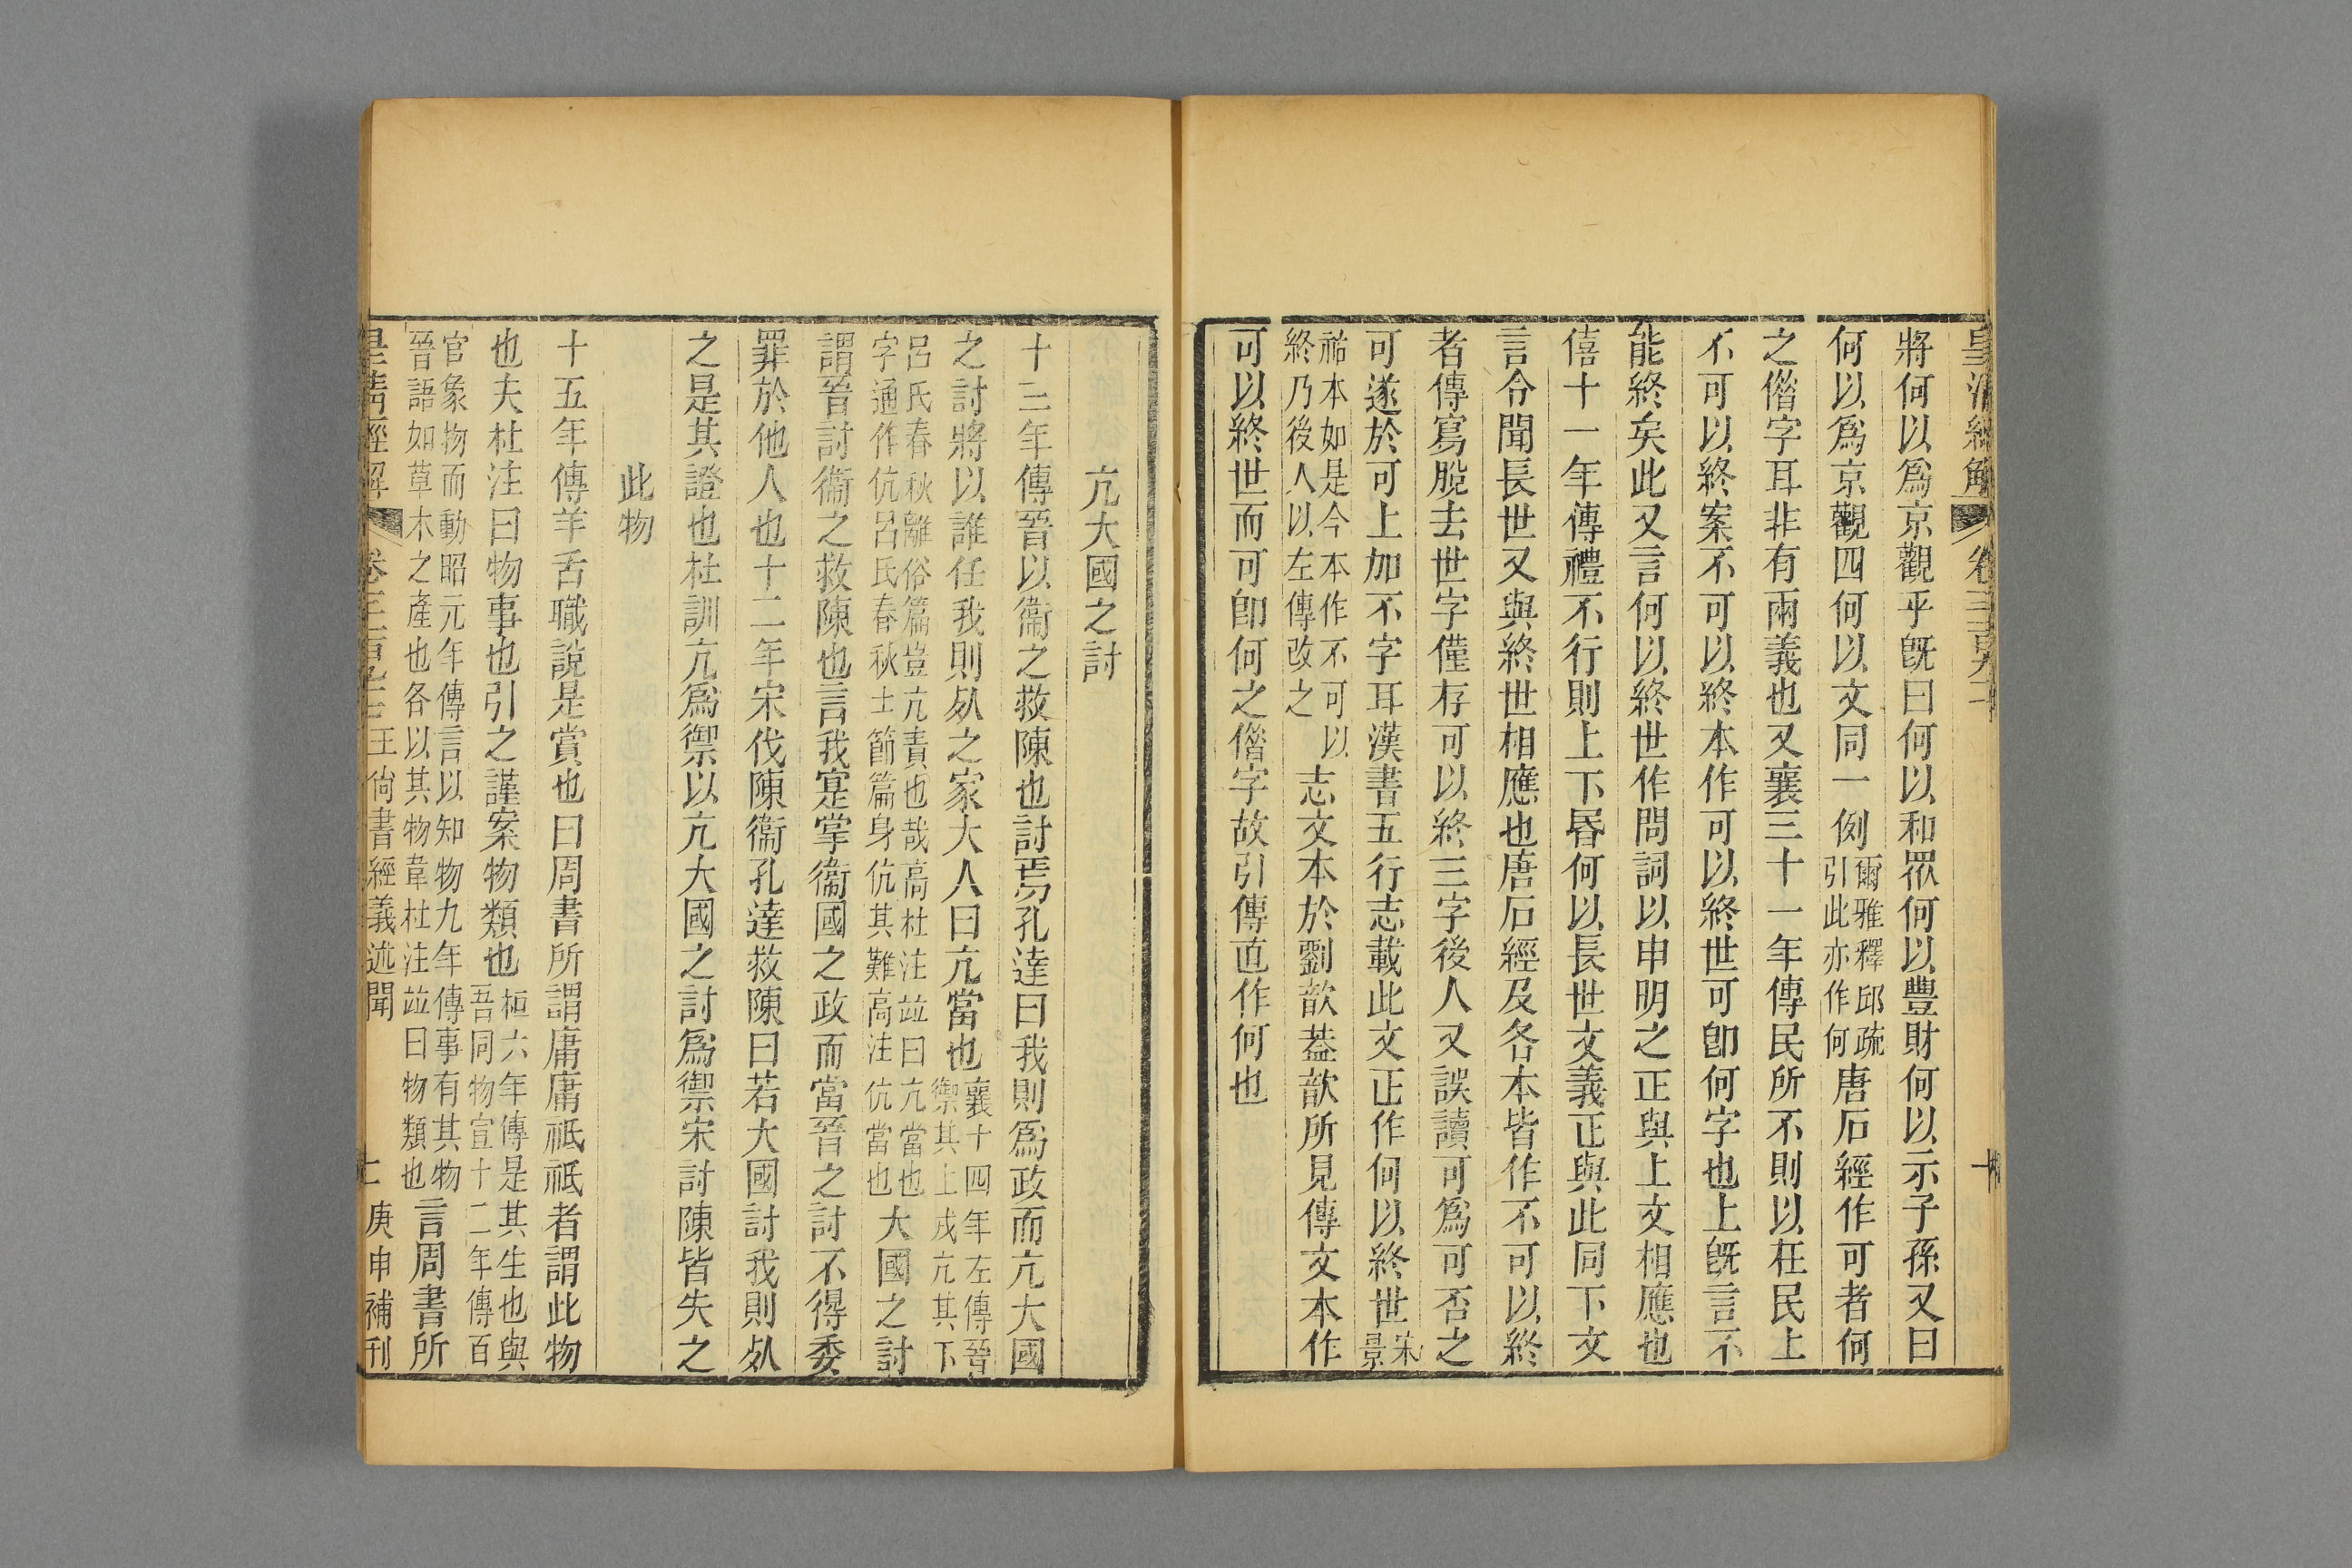 將何以爲京觀乎旣曰何以和眾何以豐財何以示子孫又曰
何以爲京觀四何以文同一例爾雅釋邱疏引此亦作何唐石經作可者何
之偺字耳非有兩義也又襄三十一年傳民所不則以在民上
不可以終案不可以終本作可以終世可卽何字也上旣言不
能終矣此又言何以終世作問詞以申明之正與上文相應也
僖十一年傳禮不行則上下昬何以長世文義正與此同下文
言令聞長世又與終世相應也唐石經及各本皆作不可以終
者傳寫脫去世字僅存可以終三字後人又誤讀可爲可否之
可遂於可上加不字耳漢書五行志載此文正作何以終世宋景
祐本如是今本作不可以終乃後人以左傳改之志文本於劉歆葢歆所見傳文本作
可以終世而可卽何之偺字故引傳直作何也
亢大國之討
十二年傳晉以衞之救陳也討焉孔達曰我則爲政而亢大國
之討將以誰任我則死之家大人曰亢當也襄十四年左傳晉禦其上戎亢其下
呂氏春秋離俗篇豈亢責也哉高杜注竝曰亢當也字通作伉呂氏春秋士節篇身伉其難高注伉當也大國之討
謂晉討衞之救陳也言我寔掌衞國之政而當晉之討不得委
罪於他人也十二年宋伐陳衞孔達救陳曰若大國討我則死
之是其證也杜訓亢爲禦以亢大國之討爲禦宋討陳皆失之
此物
十五年傳羊舌職說是賞也曰周書所謂庸庸祗祗者謂此物
也夫杜注曰物事也引之謹案物類也桓六年傳是其生也與吾同物宣十二年傳百
官象物而動昭元年傳言以知物九年傳事有其物晉語如草木之產也各以其物韋杜注竝曰物類也言周書所
皇清經解 卷 王尙書經義述聞 庚申補刊